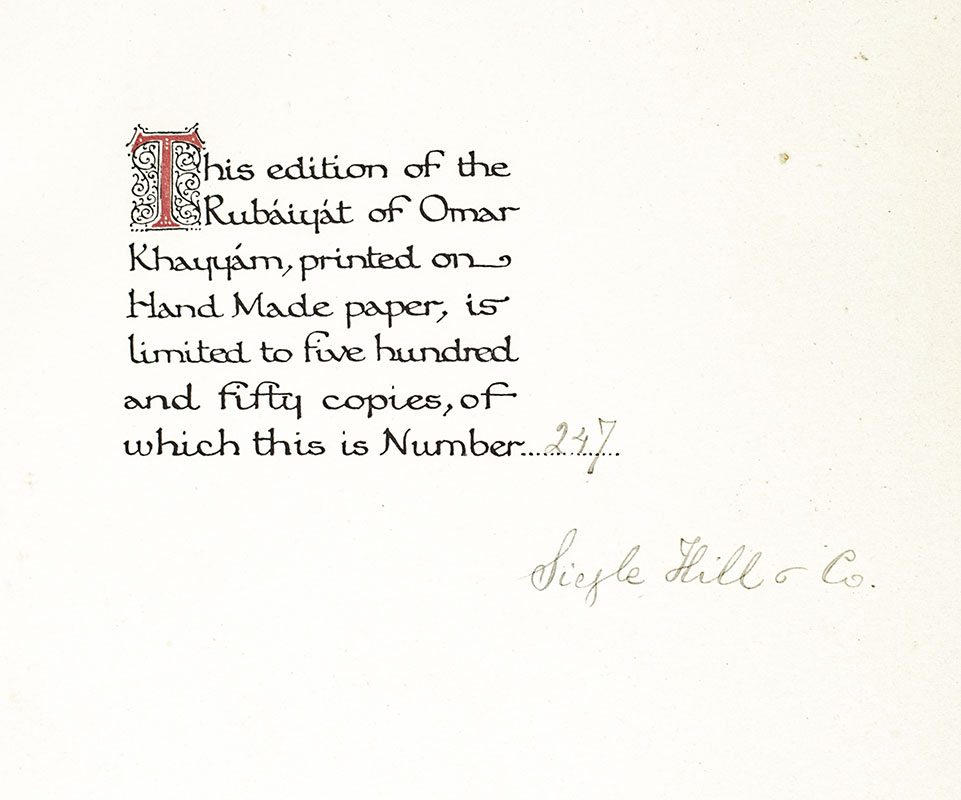 This edition of the
Rubáiyát of Omar
Khayyám, printed on
Hand Made paper, is
limited to five hundred
and fifty copies, of
which this is Number...247...
Siegle Hill & Co.